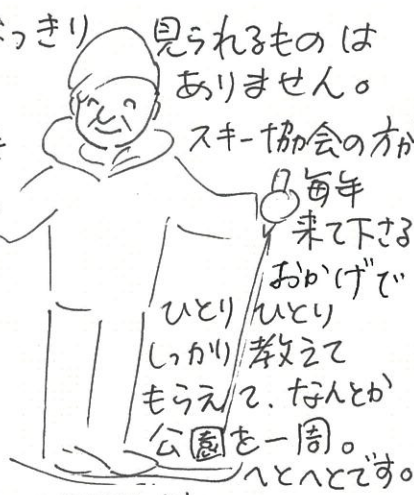 っきり 見られるものは
ありません。
スキー協会の方が
毎年
来て下さる
おかげで
ひとりひとり
しっかり教えて
もらえて、なんとか
公園を一周。
へとへとです。